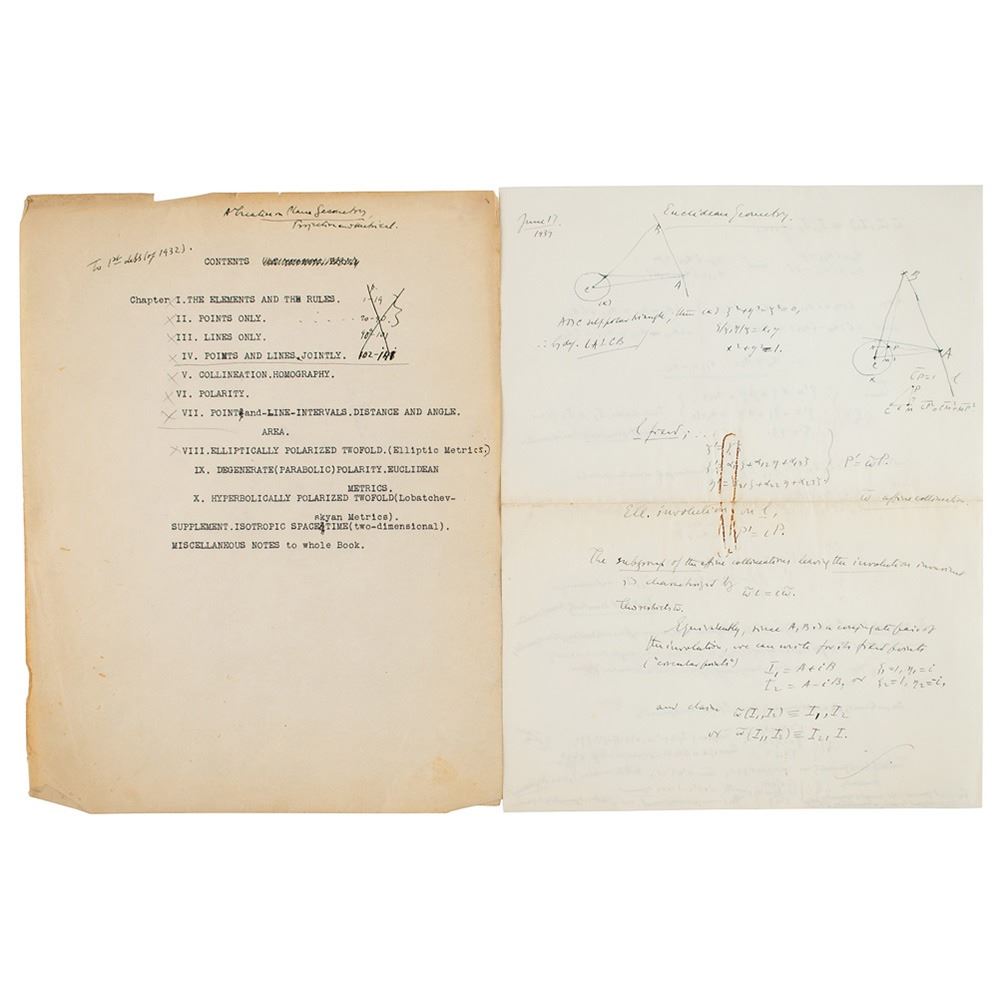 A Treatise on Plane Geometry,
Projective and Metrical.
To 1st debs (of 1932).
CONTENTS
Chapter I.THE ELEMENTS AND THE RULES. 1-19
II. POINTS ONLY. . . . . . 20-90
III. LINES ONLY.
IV. POINTS AND LINES JOINTLY. 102-141
V. COLLINEATION.HOMOGRAPHY.
VI. POLARITY.
VII. POINT-and-LINE-INTERVALS.DISTANCE AND ANGLE.
AREA.
VIII.ELLIPTICALLY POLARIZED TWOFOLD.(Elliptic Metrics.)
IX. DEGENERATE(PARABOLIC)POLARITY.EUCLIDEAN
METRICS.
X. HYPERBOLICALLY POLARIZED TWOFOLD(Lobatchev-
skyan Metrics).
SUPPLEMENT.ISOTROPIC SPACE-TIME(two-dimensional).
MISCELLANEOUS NOTES to whole Book.
June 17
1937
Euclidean Geometry.
B
C
A
(κ)
ABC self polar triangle, then (κ) ξ²+η²-ζ²=0,
ξ/ζ, η/ζ = x, y
∴ CA⊥CB
x²+y²=1.
B
A
C
κ
l
l fixed; ...
P' = ω̄P.
ω̄ affine collineation.
Ell. involution on l,
P' = ιP.
The subgroup of the affine collineations leaving the involution invariant
is characterized by
ω̄ι = ιω̄.
Equivalently, since A, B is a conjugate pair of
the involution, we can write for its fixed points
("circular points") I₁ = A+iB ξ₁=1, η₁=i
I₂ = A-iB, or ξ₂=1, η₂=-i,
and claim ω̄(I₁,I₂) ≡ I₁, I₂
or ω̄(I₁, I₂) ≡ I₂, I₁.